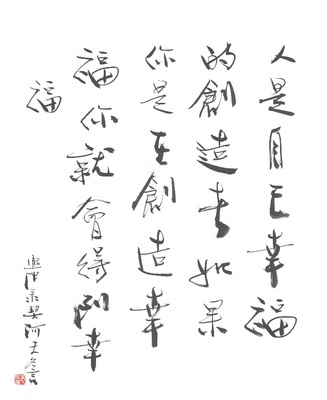 人是自己幸福
的創造者如果
你是在創造幸
福你就會得到幸
福